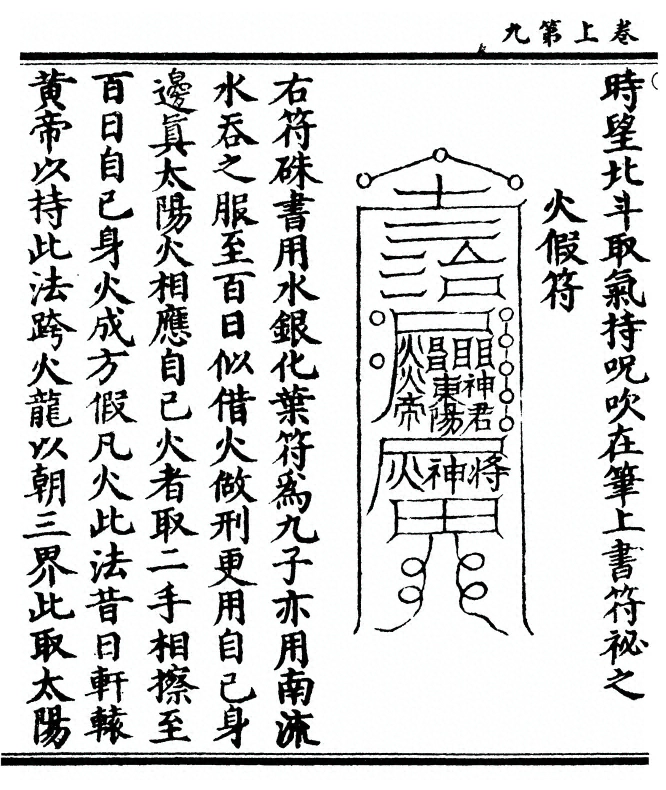 卷上第九
時望北斗取氣持呪吹在筆上書符祕之
火假符
言
三台
昌明
火火帝
東陽
神君
火神将
右符硃書用水銀化葉符爲九子亦用南流
水吞之服至百日似借火做刑更用自已身
邊眞太陽火相應自已火者取二手相擦至
百日自已身火成方假凡火此法昔日軒轅
黄帝以持此法跨火龍以朝三界此取太陽